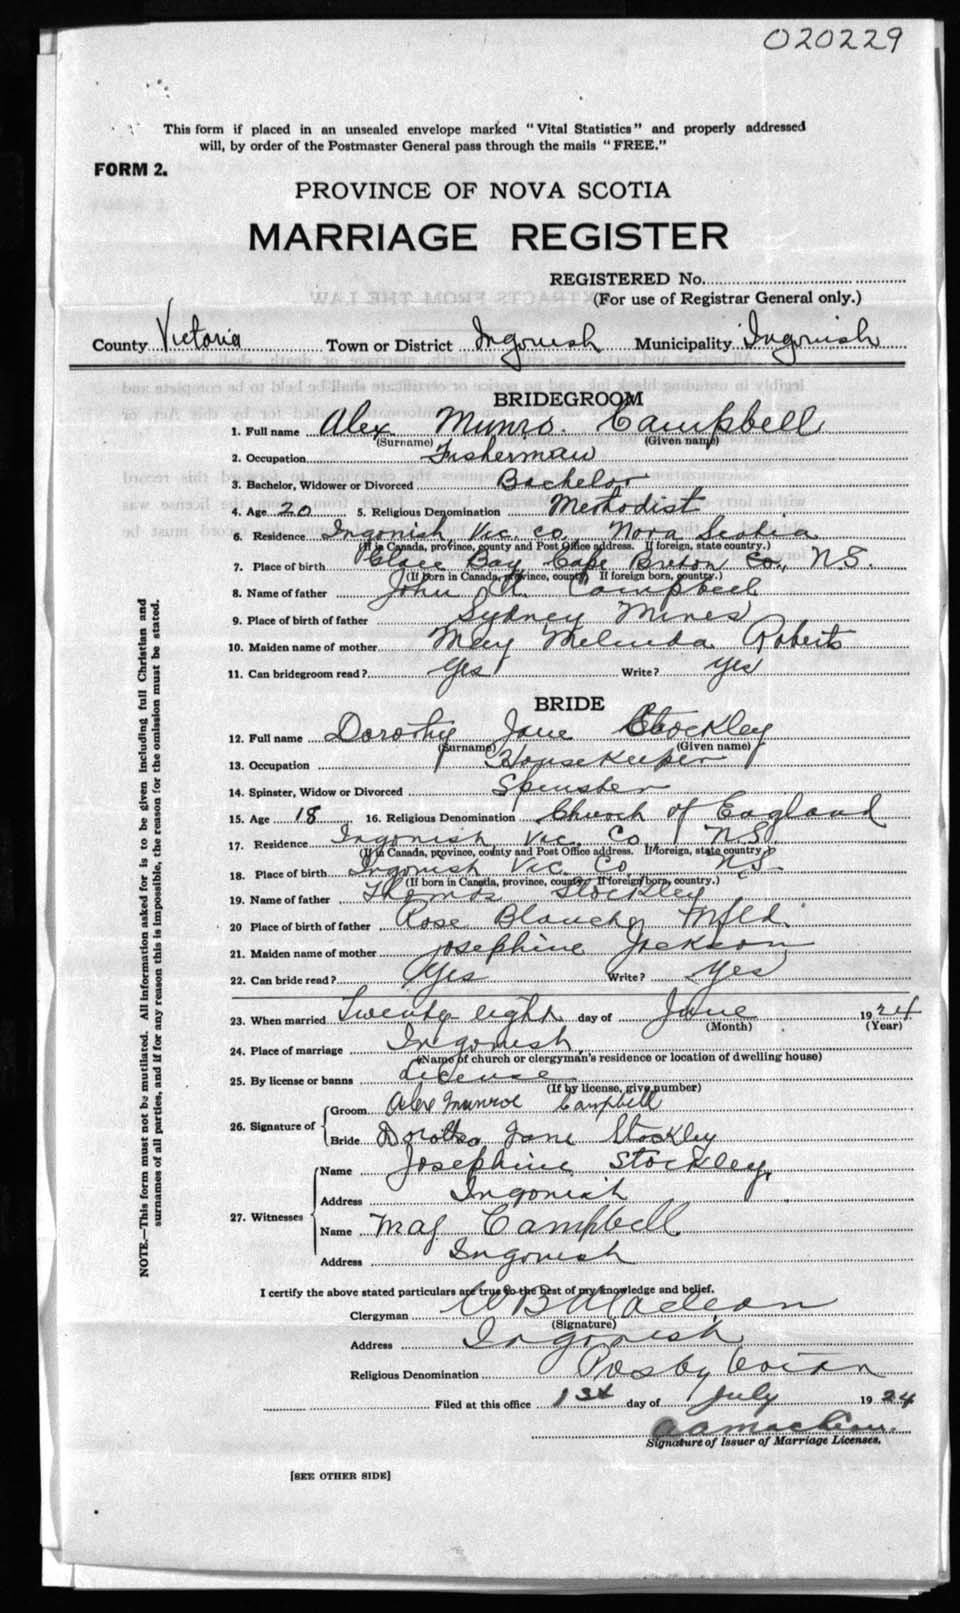 020229
This form if placed in an unsealed envelope marked "Vital Statistics" and properly addressed
will, by order of the Postmaster General pass through the mails "FREE."
FORM 2.
PROVINCE OF NOVA SCOTIA
MARRIAGE REGISTER
REGISTERED No.
(For use of Registrar General only.)
County Victoria Town or District Ingonish Municipality Ingonish
BRIDEGROOM
1. Full name Alex Munro Campbell
(Surname) (Given name)
2. Occupation Fisherman
3. Bachelor, Widower or Divorced Bachelor
4. Age 20 5. Religious Denomination Methodist
6. Residence Ingonish Vic. co. Nova Scotia
(If in Canada, province, county and Post Office address. If foreign, state country.)
7. Place of birth Glace Bay Cape Breton Co., N.S.
(If born in Canada, province, county If foreign born, country.)
8. Name of father John A. Campbell
9. Place of birth of father Sydney Mines
10. Maiden name of mother May Melinda Roberts
11. Can bridegroom read? Yes Write? yes
BRIDE
12. Full name Dorothy Jane Stockley
(Surname) (Given name)
13. Occupation Housekeeper
14. Spinster, Widow or Divorced Spinster
15. Age 18 16. Religious Denomination Church of England
17. Residence Ingonish Vic. Co N.S.
(If in Canada, province, county and Post Office address. If foreign, state country.)
18. Place of birth Ingonish Vic. Co N.S.
(If born in Canada, province, county If foreign born, country.)
19. Name of father Thomas Stockley
20 Place of birth of father Rose Blanche Nfld.
21. Maiden name of mother Josephine Jackson
22. Can bride read? Yes Write? Yes
23. When married Twenty eight day of June 1924
(Month) (Year)
24. Place of marriage Ingonish
(Name of church or clergyman's residence or location of dwelling house)
25. By license or banns License
(If by license, give number)
26. Signature of Groom Alex Munroe Campbell
Bride Dorothy Jane Stockley
27. Witnesses Name Josephine Stockley,
Address Ingonish
Name May Campbell
Address Ingonish
I certify the above stated particulars are true to the best of my knowledge and belief.
Clergyman Maclean
(Signature)
Address Ingonish
Religious Denomination
Filed at this office 1st day of July 1924
Signature of Issuer of Marriage Licenses.
[SEE OTHER SIDE]
NOTE.—This form must not be mutilated. All information asked for is to be given including full Christian and
surnames of all parties, and if for any reason this is impossible, the reason for the omission must be stated.